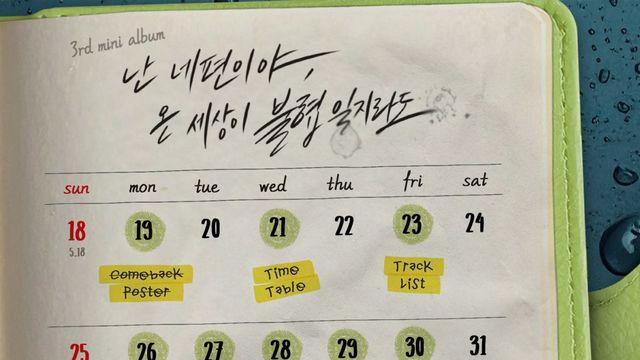 3rd mini album
난 네편이야,
온 세상이 불협일지라도
sun mon tue wed thu fri sat
18 19 20 21 22 23 24
5.18
Comeback Poster
Time Table
Track List
25 26 27 28 29 30 31